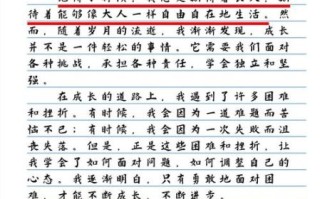 待着能够像大人一样自由自在地生活。然
而，随着岁月的流逝，我渐渐发现，成长
并不是一件轻松的事情。它需要我们面对
各种挑战，承担各种责任，学会独立和坚
强。
在成长的道路上，我遇到了许多困难
和挫折。有时候，我会因为一道难题而苦
恼不已；有时候，我会因为一次失败而沮
丧失落。但是，正是这些困难和挫折，让
我学会了如何面对问题，如何调整自己的
心态。我逐渐明白，只有勇敢地面对困
难，才能不断成长，不断进步。